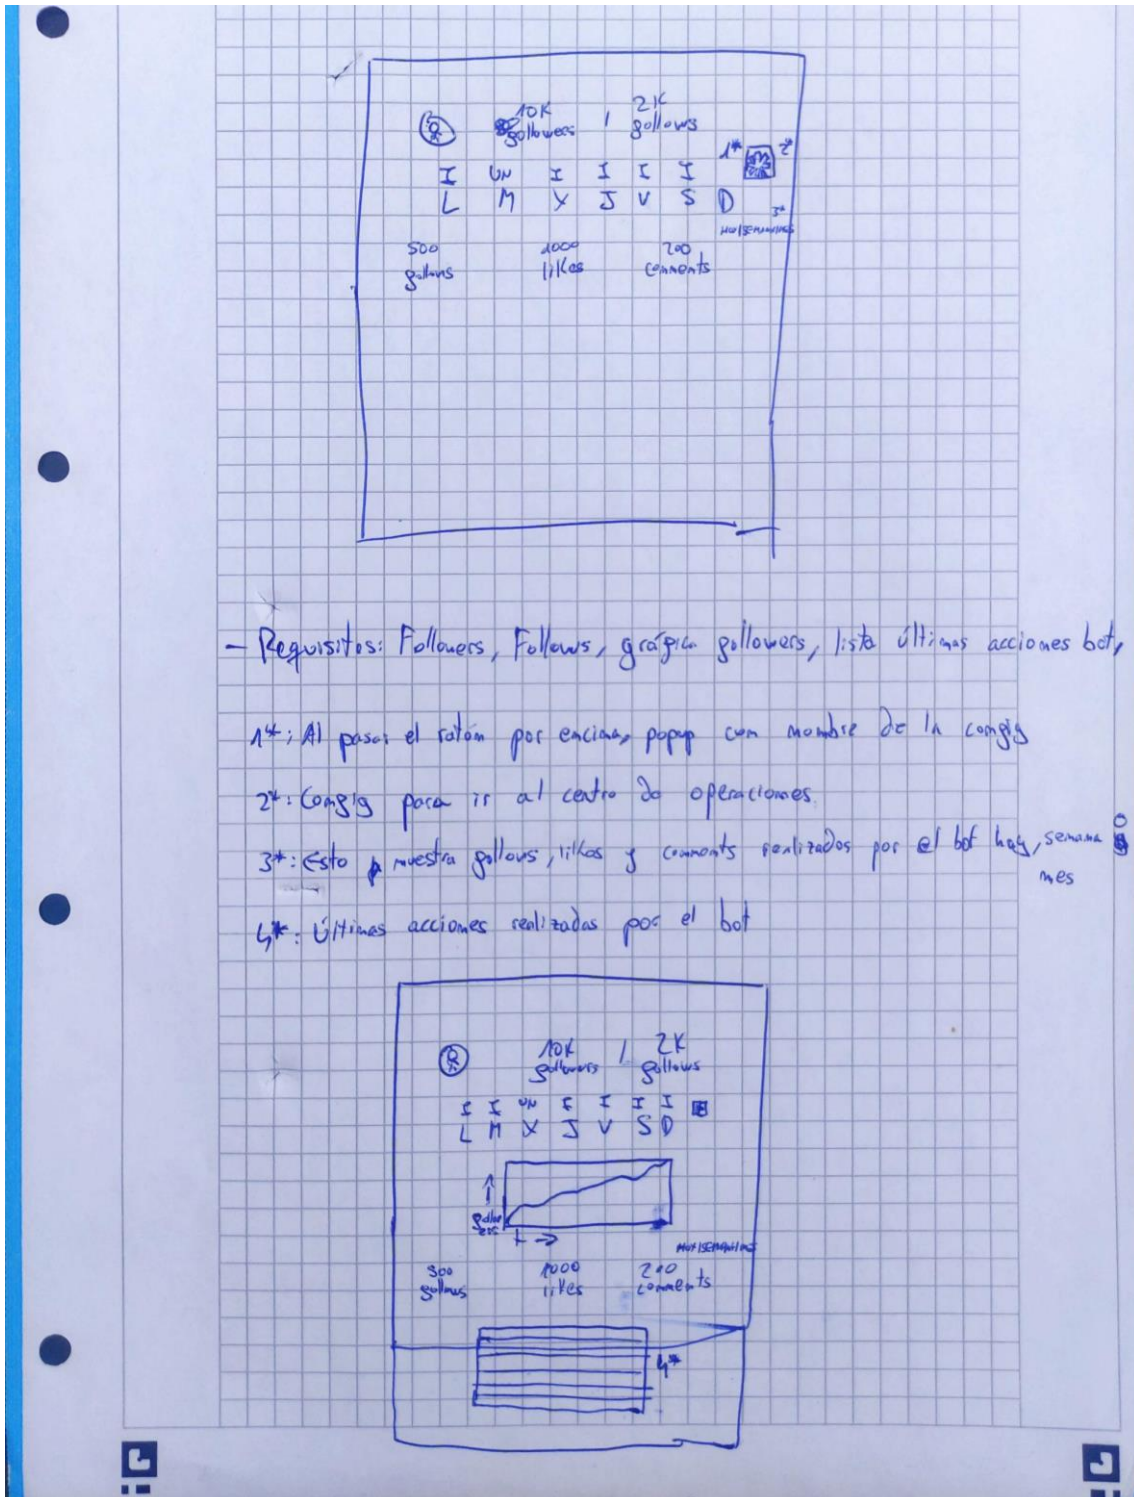 10K | 2K
followers follows
1* 2*
I UN I I I I
L M X J V S D
3*
HOY/SEMANA/MES
500 1000 200
follows likes comments
- Requisitos: Followers, Follows, gráfica followers, lista últimas acciones bot,
1*: Al pasar el ratón por encima, popup con nombre de la config
2*: Config para ir al centro de operaciones
3*: Esto muestra follows, likes y comments realizados por el bot hoy, semana o
mes
4*: Últimas acciones realizadas por el bot
10K / 2K
followers follows
I I UN I I I I
L M X J V S D
follo
t →
HOY/SEMANA/MES
1000 200
follows likes comments
4*